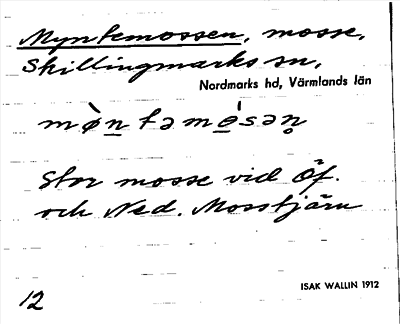 Myntemossen, mosse,
Skillingmarks sn,
Nordmarks hd, Värmlands län
mø̀ntəmésən̥
Stor mosse vid Öf.
och Ned. Mosstjärn
ISAK WALLIN 1912
12